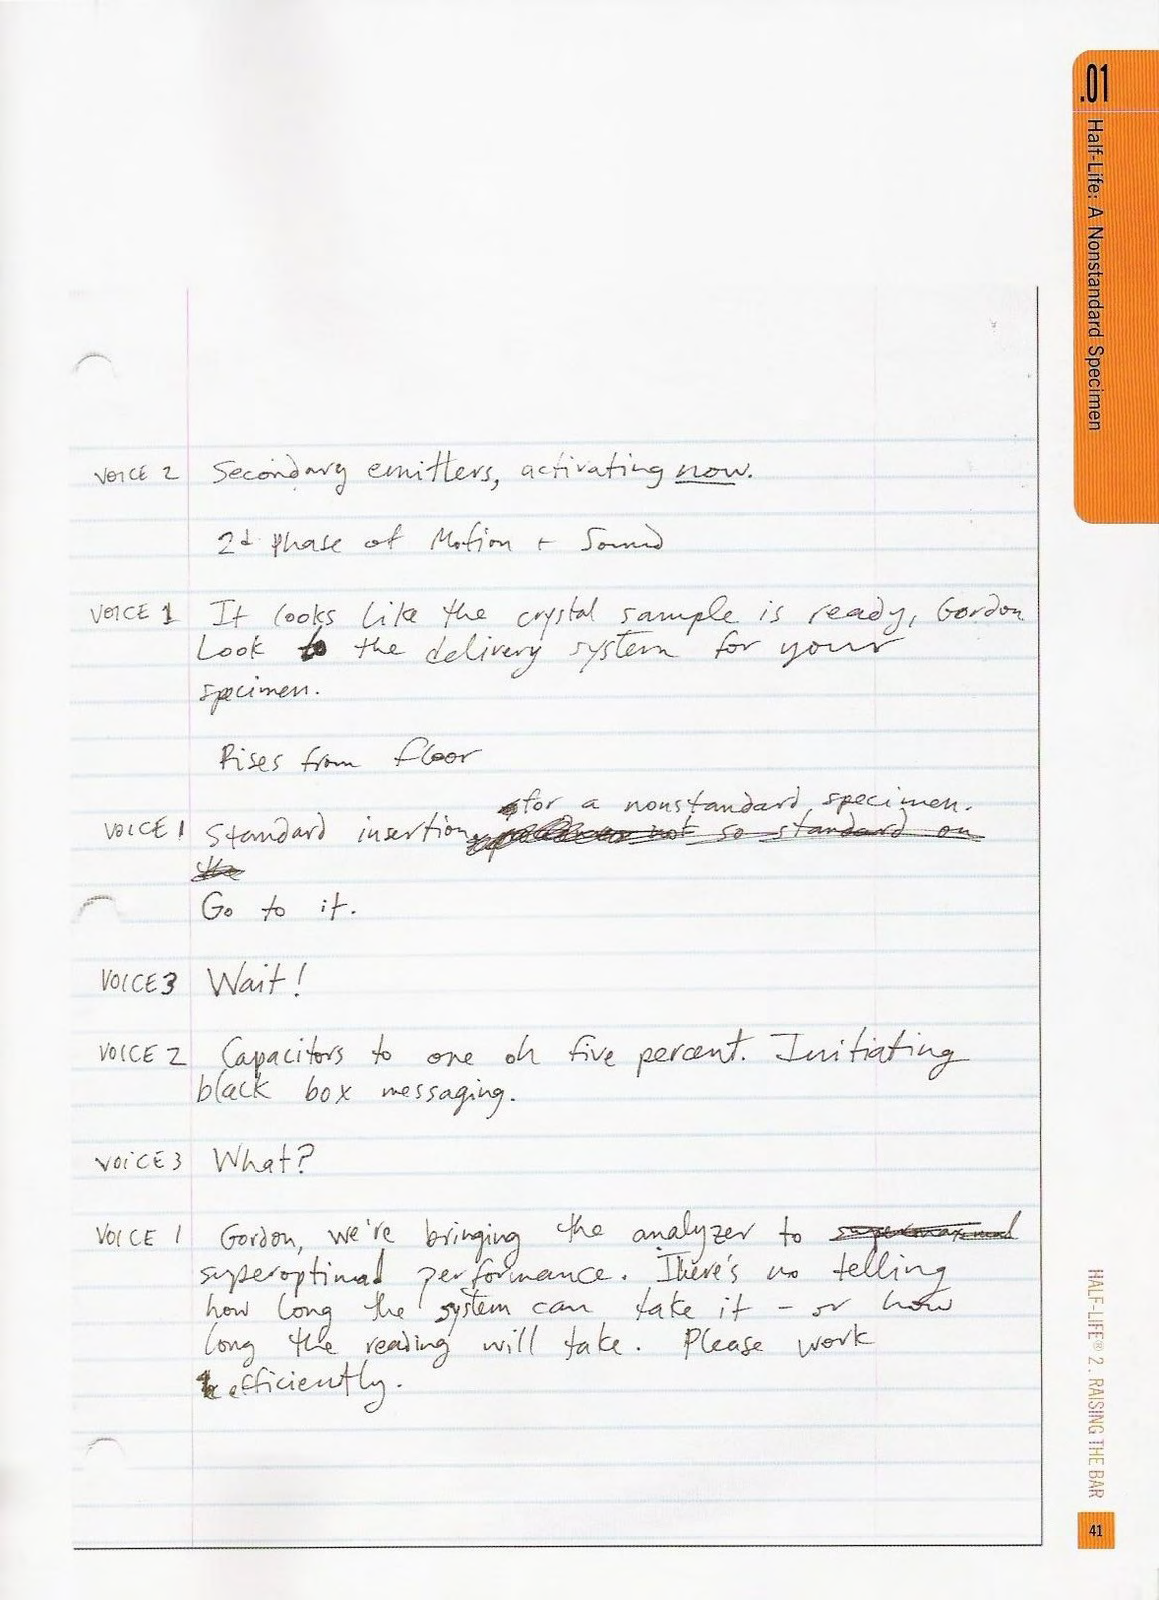 .01
Half-Life: A Nonstandard Specimen
VOICE 2 Secondary emitters, activating now.
2d phase of Motion + Sound
VOICE 1 It looks like the crystal sample is ready, Gordon
Look to the delivery system for your
specimen.
Rises from floor
for a nonstandard specimen.
VOICE 1 Standard insertion not so standard on
the
Go to it.
VOICE 3 Wait!
VOICE 2 Capacitors to one oh five percent. Initiating
black box messaging.
VOICE 3 What?
VOICE 1 Gordon, we're bringing the analyzer to
superoptimal performance. There's no telling
how long the system can take it - or how
long the reading will take. Please work
efficiently.
HALF-LIFE® 2. RAISING THE BAR
41